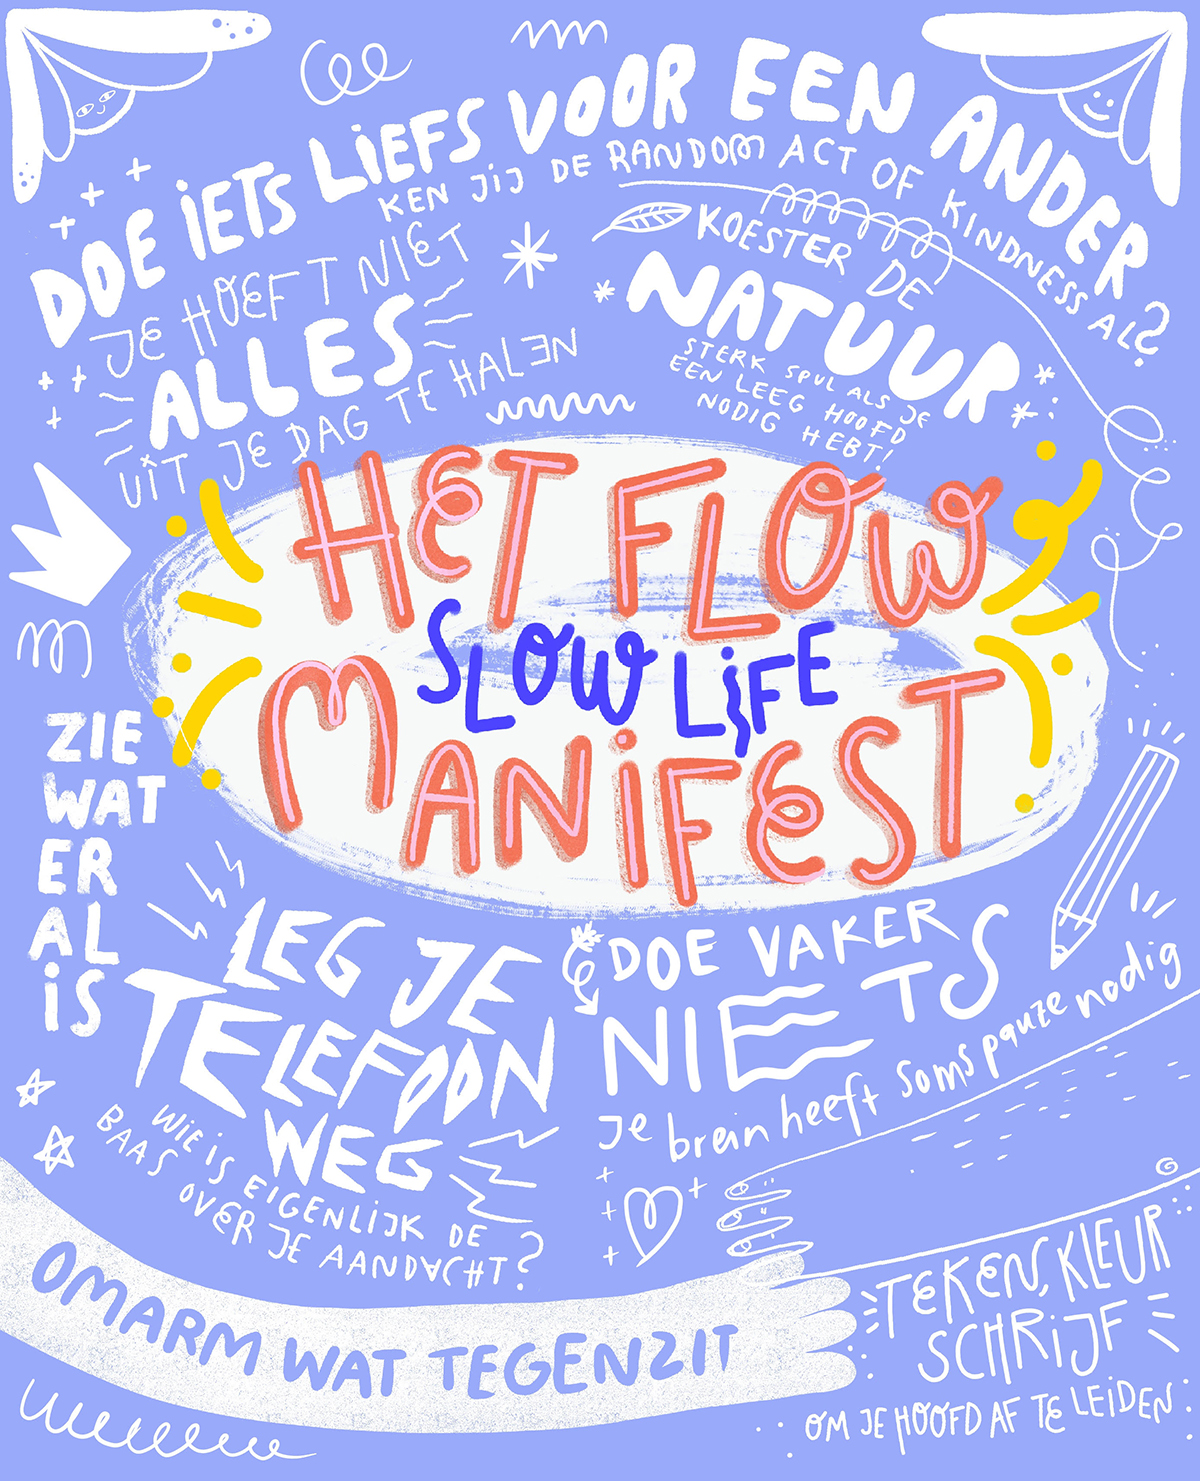 DOE iETS LiEFS VOOR EEN ANDER
KEN JIJ DE RANDOM ACT OF KINDNESS AL?
JE HOEFT NIET
ALLES
UIT JE DAG TE HALEN
KOESTER DE
NATUUR
STERK SPUL ALS JE
EEN LEEG HOOFD
NODIG HEBT!
HET FLOW
SLOW LiFE
MANiFEST
ZIE
WAT
ER
AL
iS
LEG JE
TELEFOON
WEG
WiE iS EIGENLIJK DE
BAAS OVER JE AANDACHT?
DOE VAKER
NIETS
Je brein heeft soms pauze nodig
OMARM WAT TEGENZIT
TEKEN, KLEUR
SCHRiJF
OM JE HOOFD AF TE LEiDEN